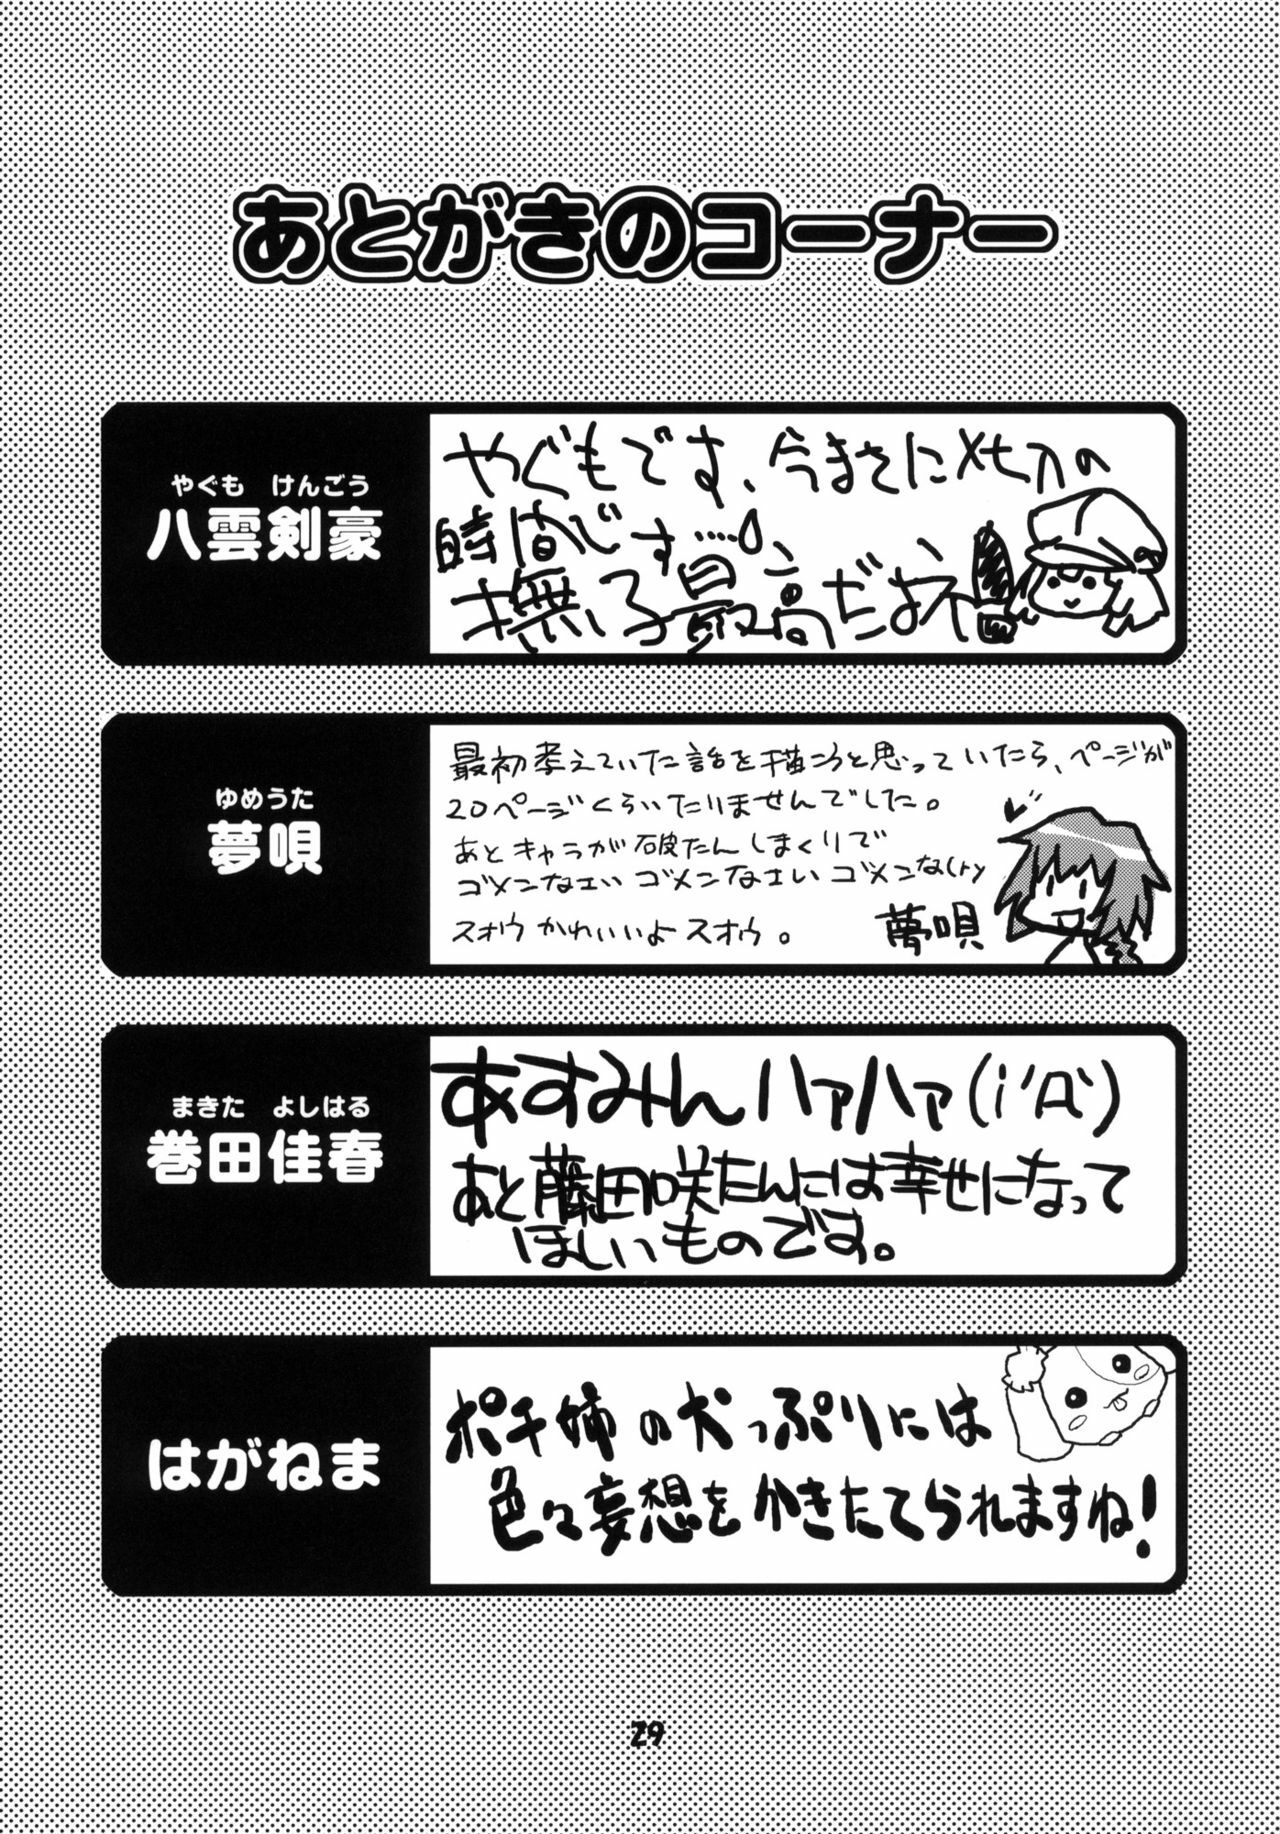 あとがきのコーナー
やぐも けんごう
八雲剣豪
やぐもです、今まさに〆切の
時間です…。
撫子最高だよ
ゆめうた
夢唄
最初考えていた話を描こうと思っていたら、ページが
20ページくらいたりませんでした。
あとキャラが破たんしまくりで
ゴメンなさい ゴメンなさい ゴメンな(ry
スオウかわいいよスオウ。
夢唄
まきた よしはる
巻田佳春
あすみんハァハァ(;´Д`)
あと藤田咲たんには幸せになって
ほしいものです。
はがねま
ポチ姉の犬っぷりには
色々妄想をかきたてられますね!
29